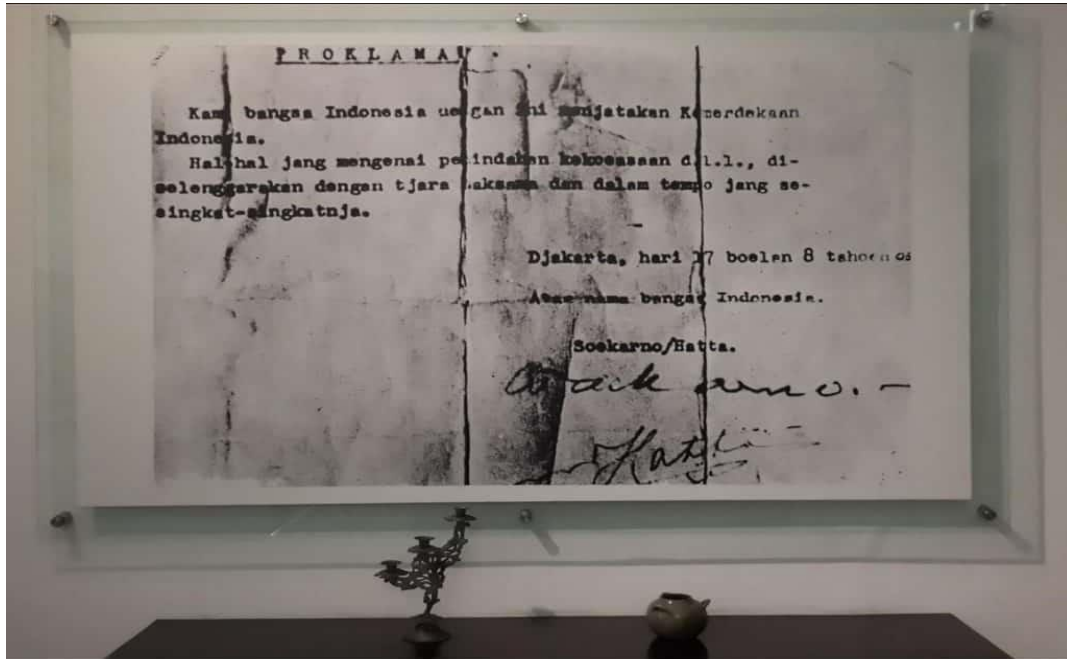 PROKLAMASI
Kami bangsa Indonesia dengan ini menjatakan Kemerdekaan
Indonesia.
Hal-hal jang mengenai pemindahan kekoeasaan d.l.l., di-
selenggarakan dengan tjara saksama dan dalam tempo jang se-
singkat-singkatnja.
Djakarta, hari 17 boelan 8 tahoen 05
Atas nama bangsa Indonesia.
Soekarno/Hatta.
Soekarno.-
Hatta